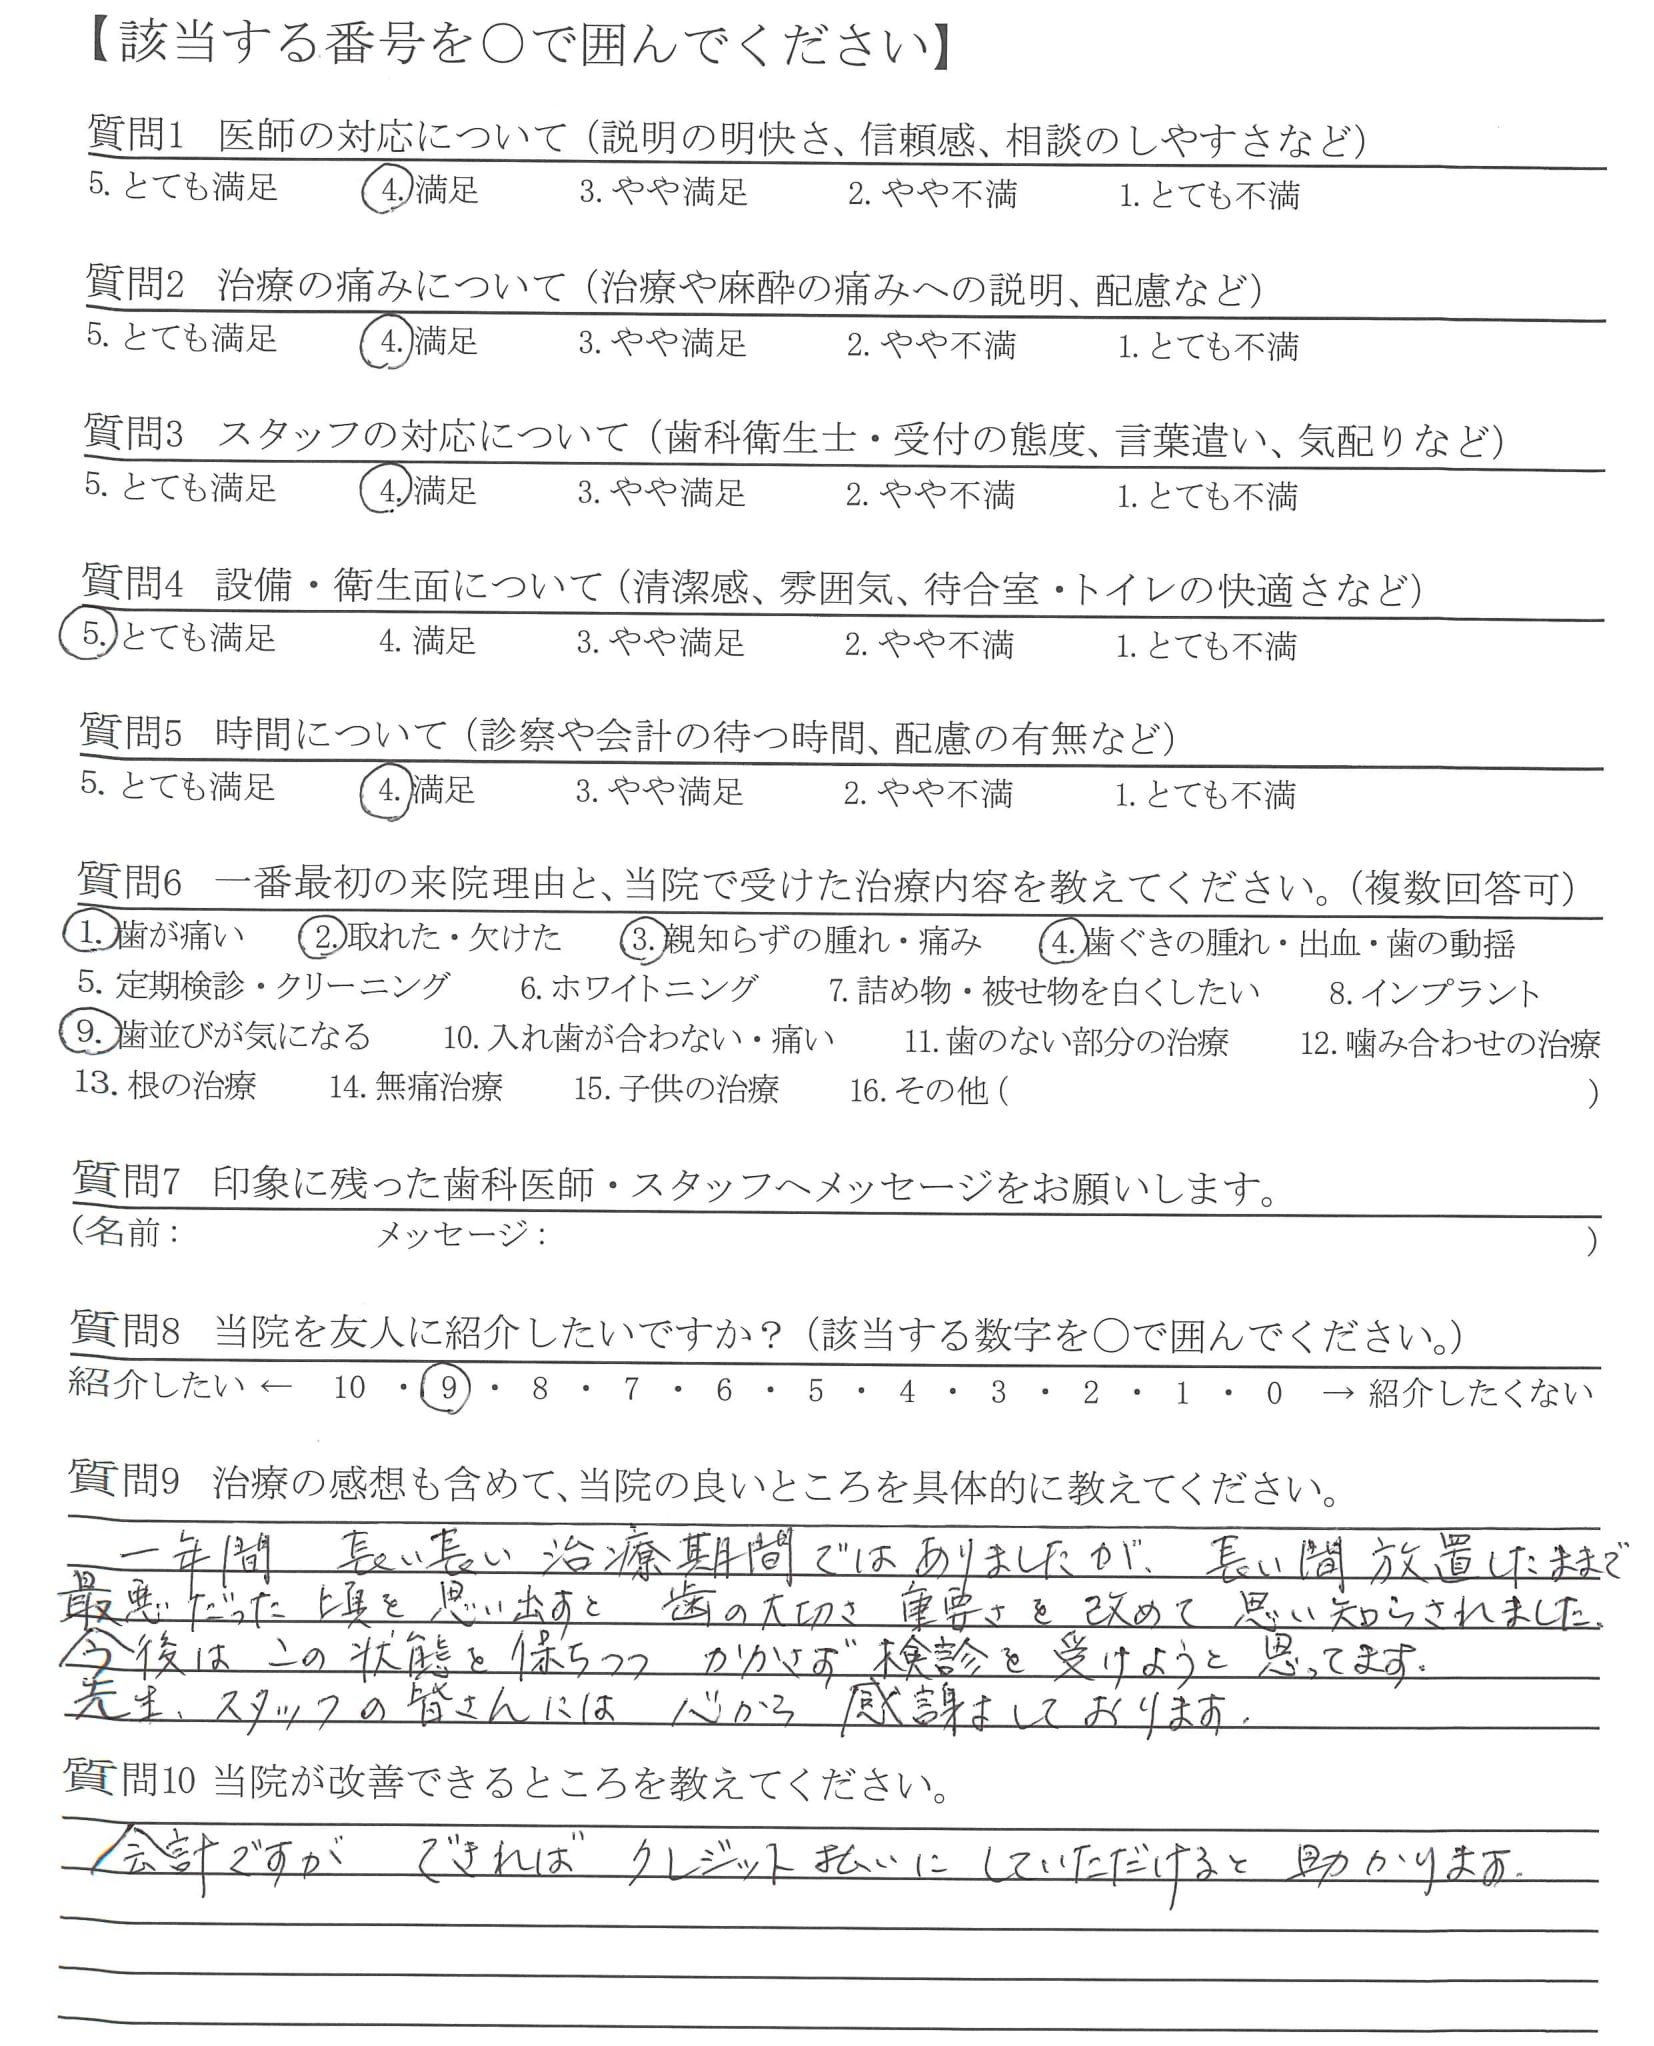 【該当する番号を〇で囲んでください】
質問1 医師の対応について（説明の明快さ、信頼感、相談のしやすさなど）
5. とても満足 4. 満足 3. やや満足 2. やや不満 1. とても不満
質問2 治療の痛みについて（治療や麻酔の痛みへの説明、配慮など）
5. とても満足 4. 満足 3. やや満足 2. やや不満 1. とても不満
質問3 スタッフの対応について（歯科衛生士・受付の態度、言葉遣い、気配りなど）
5. とても満足 4. 満足 3. やや満足 2. やや不満 1. とても不満
質問4 設備・衛生面について（清潔感、雰囲気、待合室・トイレの快適さなど）
5. とても満足 4. 満足 3. やや満足 2. やや不満 1. とても不満
質問5 時間について（診察や会計の待つ時間、配慮の有無など）
5. とても満足 4. 満足 3. やや満足 2. やや不満 1. とても不満
質問6 一番最初の来院理由と、当院で受けた治療内容を教えてください。（複数回答可）
1. 歯が痛い 2. 取れた・欠けた 3. 親知らずの腫れ・痛み 4. 歯ぐきの腫れ・出血・歯の動揺
5. 定期検診・クリーニング 6. ホワイトニング 7. 詰め物・被せ物を白くしたい 8. インプラント
9. 歯並びが気になる 10. 入れ歯が合わない・痛い 11. 歯のない部分の治療 12. 噛み合わせの治療
13. 根の治療 14. 無痛治療 15. 子供の治療 16. その他（ ）
質問7 印象に残った歯科医師・スタッフへメッセージをお願いします。
（名前： メッセージ： ）
質問8 当院を友人に紹介したいですか？（該当する数字を〇で囲んでください。）
紹介したい ← 10 ・ 9 ・ 8 ・ 7 ・ 6 ・ 5 ・ 4 ・ 3 ・ 2 ・ 1 ・ 0 → 紹介したくない
質問9 治療の感想も含めて、当院の良いところを具体的に教えてください。
一年間 長い長い 治療期間ではありましたが、長い間 放置したままで
最悪だった 頃を 思い出すと 歯の大切さ 重要さを 改めて 思い知らされました。
今後は この状態を 保ちつつ かかさず 検診を 受けようと 思ってます。
先生、スタッフの皆さんには 心から 感謝しております。
質問10 当院が改善できるところを教えてください。
会計ですが できれば クレジット払いに していただけると 助かります。